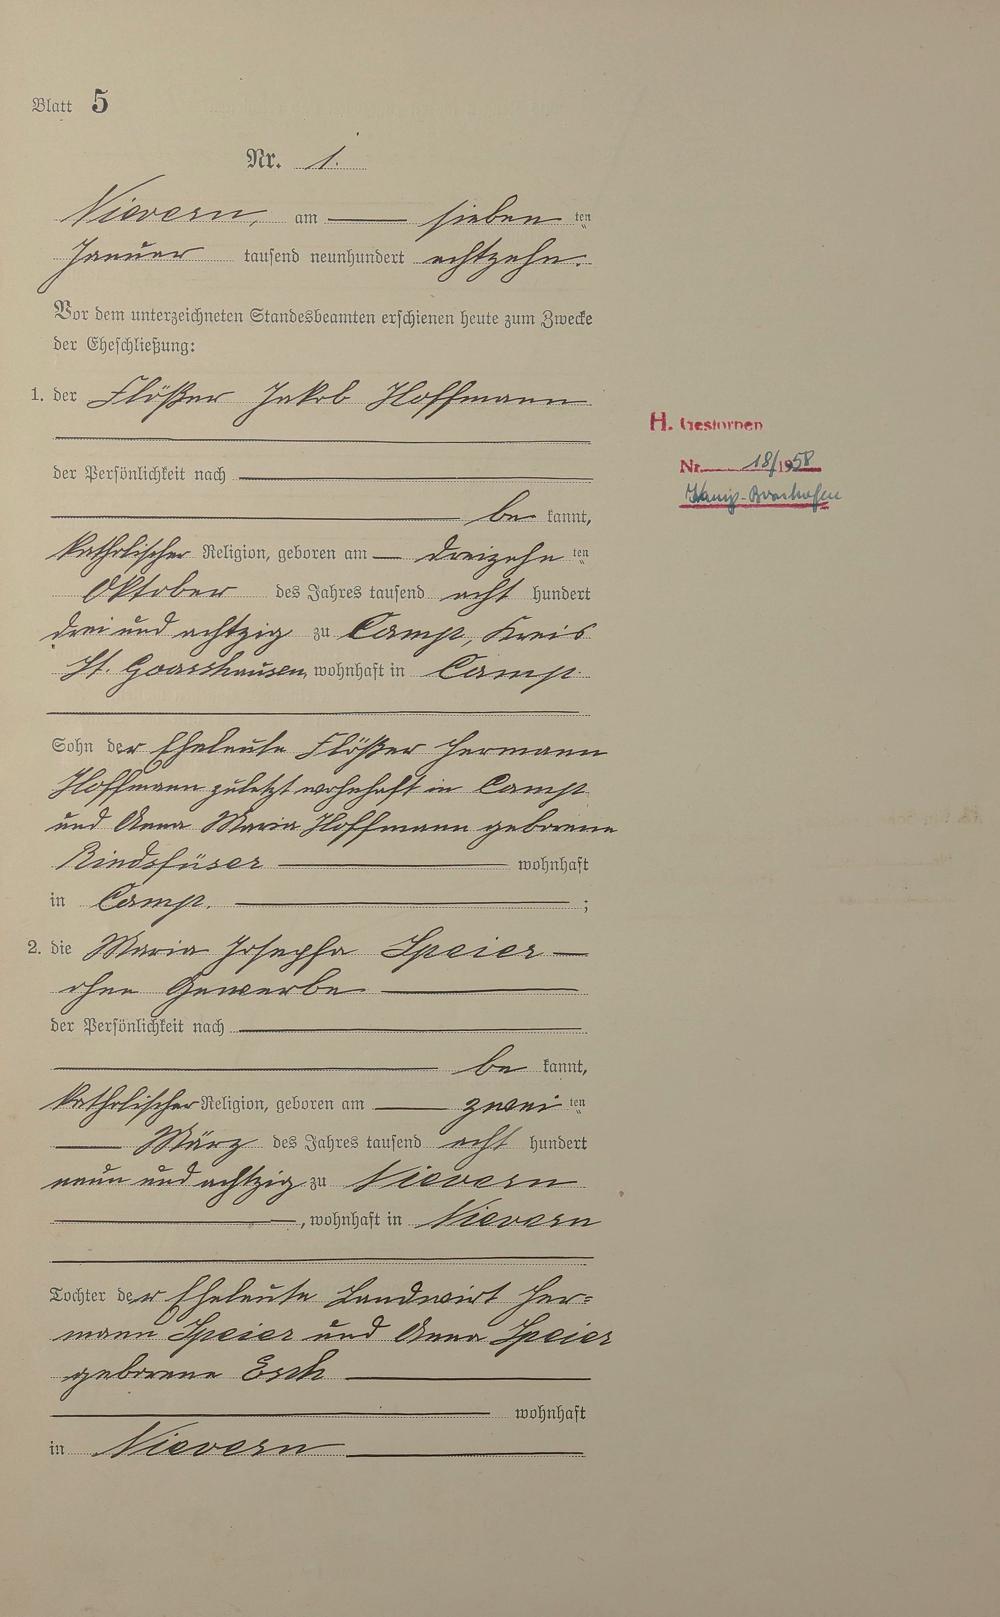 Blatt 5
Nr. 1.
Nievern, am sieben ten
Januar tausend neunhundert achtzehn.
Vor dem unterzeichneten Standesbeamten erschienen heute zum Zwecke
der Eheschließung:
1. der Flößer Jakob Hoffmann
der Persönlichkeit nach
be kannt,
katholischer Religion, geboren am dreizehn ten
Oktober des Jahres tausend acht hundert
drei und achtzig zu Camp, Kreis
St. Goarshausen, wohnhaft in Camp
Sohn der Eheleute Flößer Hermann
Hoffmann zuletzt wohnhaft in Camp
und Anna Maria Hoffmann geborene
Rindsfüser wohnhaft
in Camp. ;
2. die Maria Josepha Speier
ohne Gewerbe
der Persönlichkeit nach
be kannt,
katholischer Religion, geboren am zwei ten
März des Jahres tausend acht hundert
neun und achtzig zu Nievern
, wohnhaft in Nievern
Tochter der Eheleute Landwirt Her=
mann Speier und Anna Speier
geborene Esch
wohnhaft
in Nievern
H. Gestorben
Nr. 18/1958
Kamp-Bornhofen